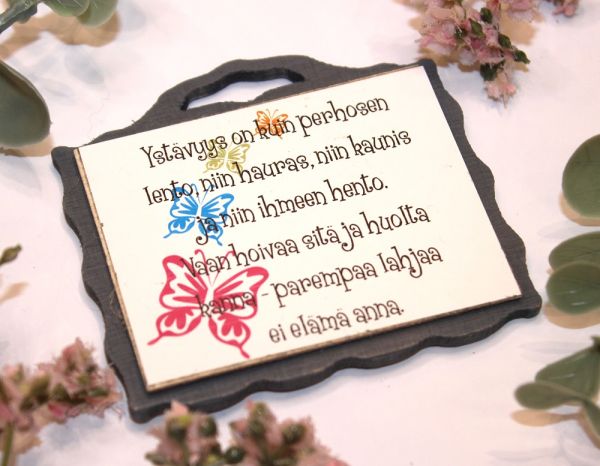 Ystävyys on kuin perhosen
lento, niin hauras, niin kaunis
ja niin ihmeen hento.
Vaan hoivaa sitä ja huolta
kanna - parempaa lahjaa
ei elämä anna.